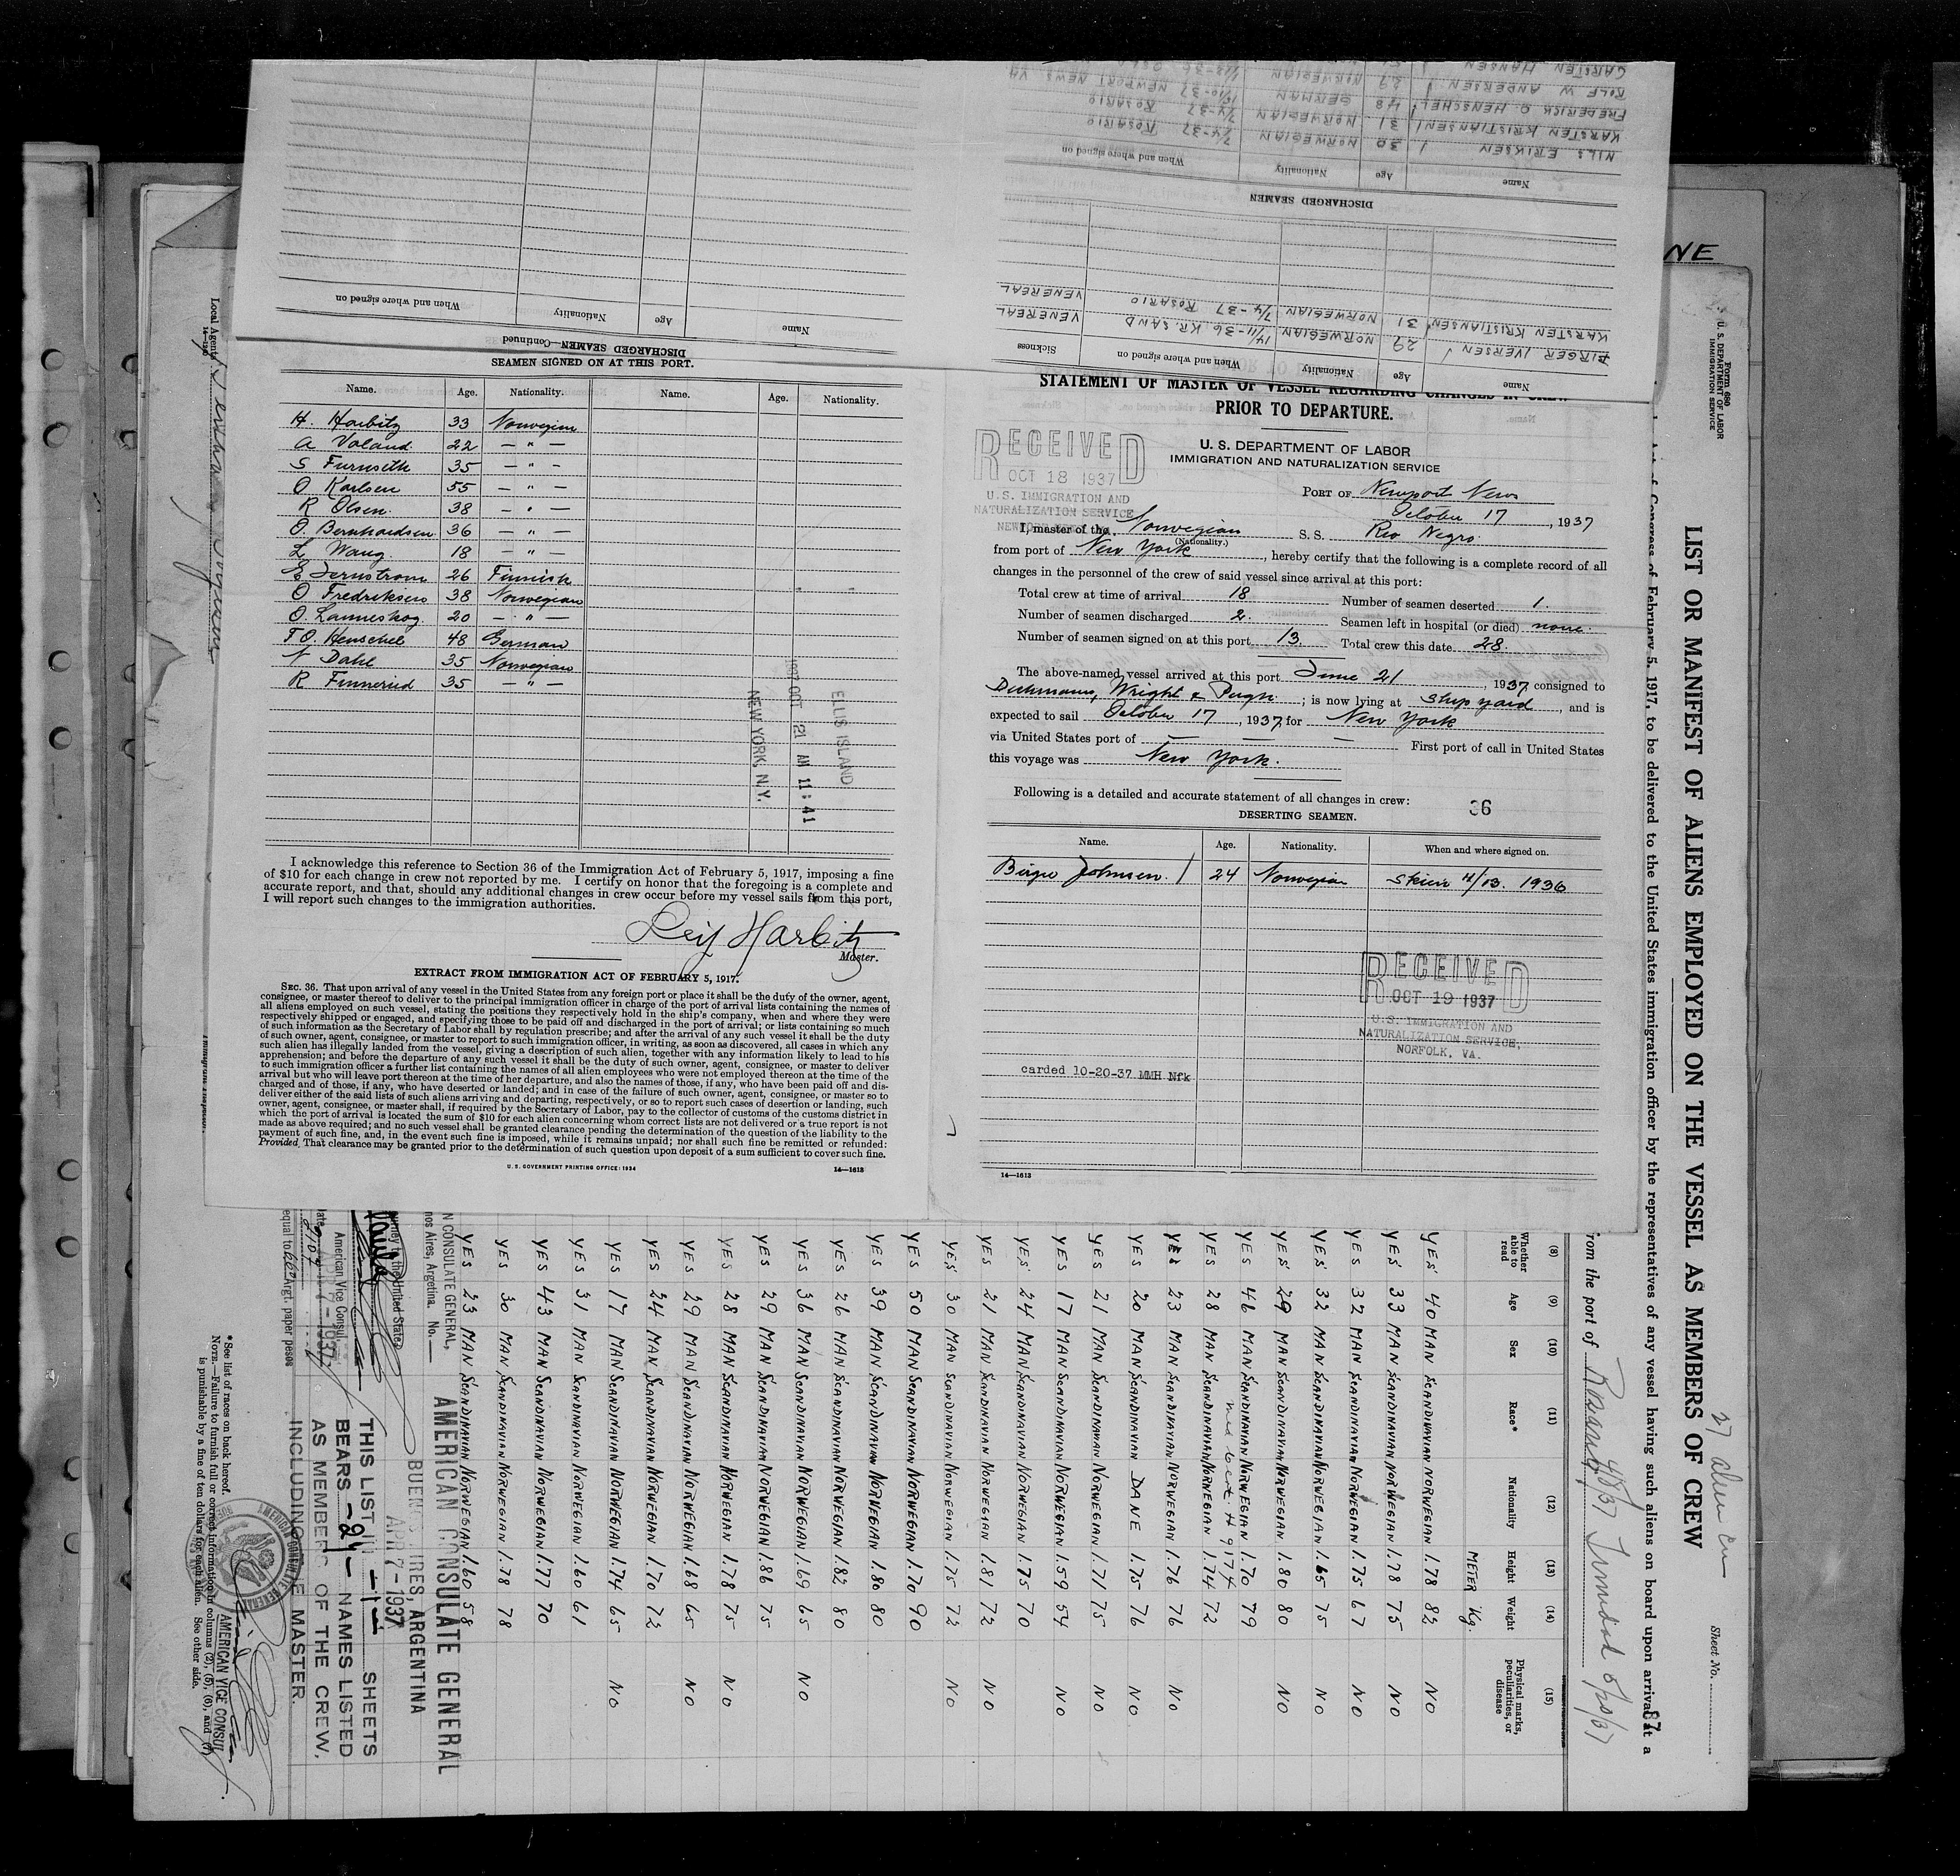 DISCHARGED SEAMEN Continued
Name
Age
Nationality
When and where signed on
CARSTEN HANSEN
ROLF W ANDERSEN 29 NORWEGIAN NEWPORT NEWS VA
FREDERICK O. HENSCHEL 48 GERMAN
KARSTEN KRISTIANSEN 31 NORWEGIAN 7/4-37 ROSARIO
NILS ERIKSEN 30 NORWEGIAN 7/4-37 ROSARIO
Name Age Nationality When and where signed on
DISCHARGED SEAMEN
KARSTEN KRISTIANSEN 31 NORWEGIAN 7/4-37 ROSARIO VENEREAL
BIRGER IVERSEN 29 NORWEGIAN 14/11-36 KR. SAND VENEREAL
Name Age Nationality When and where signed on Sickness
NE
SEAMEN SIGNED ON AT THIS PORT.
Name. Age. Nationality. Name. Age. Nationality.
H. Harbitz 33 Norwegian
A Voland 22 — " —
S Furuseth 35 — " —
O Karlsen 55 — " —
R Olsen 38 — " —
O Bernhardsen 36 — " —
L Waug 18 — " —
E Jernstrom 26 Finnish
O Fredriksen 38 Norwegian
O. Lanneskog. 20 — " —
F O. Henschel 48 German
N Dahl 35 Norwegian
R Finnerud 35 — " —
ELLIS ISLAND
1937 OCT 21 AM 11:41
NEW YORK, N.Y.
I acknowledge this reference to Section 36 of the Immigration Act of February 5, 1917, imposing a fine
of $10 for each change in crew not reported by me. I certify on honor that the foregoing is a complete and
accurate report, and that, should any additional changes in crew occur before my vessel sails from this port,
I will report such changes to the immigration authorities.
Leif Harbitz
Master.
EXTRACT FROM IMMIGRATION ACT OF FEBRUARY 5, 1917.
SEC. 36. That upon arrival of any vessel in the United States from any foreign port or place it shall be the duty of the owner, agent,
consignee, or master thereof to deliver to the principal immigration officer in charge of the port of arrival lists containing the names of
all aliens employed on such vessel, stating the positions they respectively hold in the ship's company, when and where they were
respectively shipped or engaged, and specifying those to be paid off and discharged in the port of arrival; or lists containing so much
of such information as the Secretary of Labor shall by regulation prescribe; and after the arrival of any such vessel it shall be the duty
of such owner, agent, consignee, or master to report to such immigration officer, in writing, as soon as discovered, all cases in which any
such alien has illegally landed from the vessel, giving a description of such alien, together with any information likely to lead to his
apprehension; and before the departure of any such vessel it shall be the duty of such owner, agent, consignee, or master to deliver
to such immigration officer a further list containing the names of all alien employees who were not employed thereon at the time of the
arrival but who will leave port thereon at the time of her departure, and also the names of those, if any, who have been paid off and dis-
charged and of those, if any, who have deserted or landed; and in case of the failure of such owner, agent, consignee, or master so to
deliver either of the said lists of such aliens arriving and departing, respectively, or so to report such cases of desertion or landing, such
owner, agent, consignee, or master shall, if required by the Secretary of Labor, pay to the collector of customs of the customs district in
which the port of arrival is located the sum of $10 for each alien concerning whom correct lists are not delivered or a true report is not
made as above required; and no such vessel shall be granted clearance pending the determination of the question of the liability to the
payment of such fine, and, in the event such fine is imposed, while it remains unpaid; nor shall such fine be remitted or refunded:
Provided, That clearance may be granted prior to the determination of such question upon deposit of a sum sufficient to cover such fine.
U. S. GOVERNMENT PRINTING OFFICE: 1934 14—1613
STATEMENT OF MASTER OF VESSEL REGARDING CHANGES IN CREW
PRIOR TO DEPARTURE.
U. S. DEPARTMENT OF LABOR
IMMIGRATION AND NATURALIZATION SERVICE
RECEIVED
OCT 18 1937
U.S. IMMIGRATION AND
NATURALIZATION SERVICE
PORT OF Newport News
October 17, 1937
I, master of the Norwegian S. S. Rio Negro
(Nationality.)
from port of New York, hereby certify that the following is a complete record of all
changes in the personnel of the crew of said vessel since arrival at this port:
Total crew at time of arrival 18 Number of seamen deserted 1.
Number of seamen discharged 2. Seamen left in hospital (or died) none.
Number of seamen signed on at this port 13. Total crew this date 28.
The above-named vessel arrived at this port June 21, 1937, consigned to
Dichmann, Wright & Pugh; is now lying at Shipyard, and is
expected to sail October 17, 1937, for New York
via United States port of — — — First port of call in United States
this voyage was New York.
Following is a detailed and accurate statement of all changes in crew: 36
DESERTING SEAMEN.
Name. Age. Nationality. When and where signed on.
Birger Johnsen. 24 Norwegian Skien 11/13. 1936
RECEIVED
OCT 19 1937
U.S. IMMIGRATION AND
NATURALIZATION SERVICE,
NORFOLK, VA.
carded 10-20-37 MMH Nfk
14—1613
Form 680
U. S. DEPARTMENT OF LABOR
IMMIGRATION SERVICE
LIST OR MANIFEST OF ALIENS EMPLOYED ON THE VESSEL AS MEMBERS OF CREW
27 alien
Sheet No.
Act of Congress of February 5, 1917, to be delivered to the United States immigration officer by the representatives of any vessel having such aliens on board upon arrival at a
87
from the port of Rosario 4/8/37 Trinidad 5/20/37
(8) (9) (10) (11) (12) (13) (14) (15)
Whether able to read Age Sex Race* Nationality Height Weight Physical marks, peculiarities, or disease
METER Kg.
YES 40 MAN SCANDINAVIAN NORWEGIAN 1.78 83 NO
YES 33 MAN SCANDINAVIAN NORWEGIAN 1.78 75 NO
YES 32 MAN SCANDINAVIAN NORWEGIAN 1.75 67 NO
YES 32 MAN SCANDINAVIAN NORWEGIAN 1.65 75 NO
YES 29 MAN SCANDINAVIAN NORWEGIAN 1.80 80 NO
YES 46 MAN SCANDINAVIAN NORWEGIAN 1.70 79
YES 28 MAN SCANDINAVIAN NORWEGIAN 1.74 72
YES 23 MAN SCANDINAVIAN NORWEGIAN 1.76 76 NO
YES 20 MAN SCANDINAVIAN DANE 1.75 76 NO
YES 21 MAN SCANDINAVIAN NORWEGIAN 1.71 75 NO
YES 17 MAN SCANDINAVIAN NORWEGIAN 1.59 54 NO
YES 24 MAN SCANDINAVIAN NORWEGIAN 1.75 70
YES 21 MAN SCANDINAVIAN NORWEGIAN 1.81 72 NO
YES 30 MAN SCANDINAVIAN NORWEGIAN 1.75 72 NO
YES 50 MAN SCANDINAVIAN NORWEGIAN 1.70 90
YES 39 MAN SCANDINAVIAN NORWEGIAN 1.80 80
YES 26 MAN SCANDINAVIAN NORWEGIAN 1.82 80
YES 36 MAN SCANDINAVIAN NORWEGIAN 1.69 65 NO
YES 29 MAN SCANDINAVIAN NORWEGIAN 1.86 75
YES 28 MAN SCANDINAVIAN NORWEGIAN 1.78 75 NO
YES 29 MAN SCANDINAVIAN NORWEGIAN 1.68 65 NO
YES 24 MAN SCANDINAVIAN NORWEGIAN 1.70 72
YES 17 MAN SCANDINAVIAN NORWEGIAN 1.74 65 NO
YES 31 MAN SCANDINAVIAN NORWEGIAN 1.60 61
YES 43 MAN SCANDINAVIAN NORWEGIAN 1.77 70
YES 30 MAN SCANDINAVIAN NORWEGIAN 1.78 78
YES 23 MAN SCANDINAVIAN NORWEGIAN 1.60 58
AMERICAN CONSULATE GENERAL
BUENOS AIRES, ARGENTINA
APR 7 - 1937
THIS LIST IN —1— SHEETS
BEARS —27— NAMES LISTED
AS MEMBERS OF THE CREW,
INCLUDING THE MASTER.
N CONSULATE GENERAL,
nos Aires, Argetina. No.
American Vice Consul
equal to Argt. paper pesos
AMERICAN VICE CONSUL
*See list of races on back hereof.
NOTE.—Failure to furnish full or correct information in columns (2), (5), (6), and (7)
is punishable by a fine of ten dollars for each alien. See other side.
Local Agents
14—1240
Immigrant Inspector.